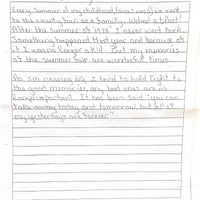 Every Summer of my childhood (sing I was) we went
to the county fair as a family. We had a blast!
After the summer of 1978 I never went back.
Something happened that year and because of
it I wasn't longer a kid. But my memories
of the summer fair are wonderful times.
As I'm nearing 42, I tend to hold tight to
the good memories, any bad ones are no
longer important. It has been said "you can
take away today and tomorrow, but all of
my yesterdays are forever."